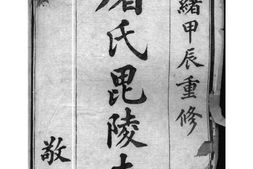 緒甲辰重修
氏毘陵
敬